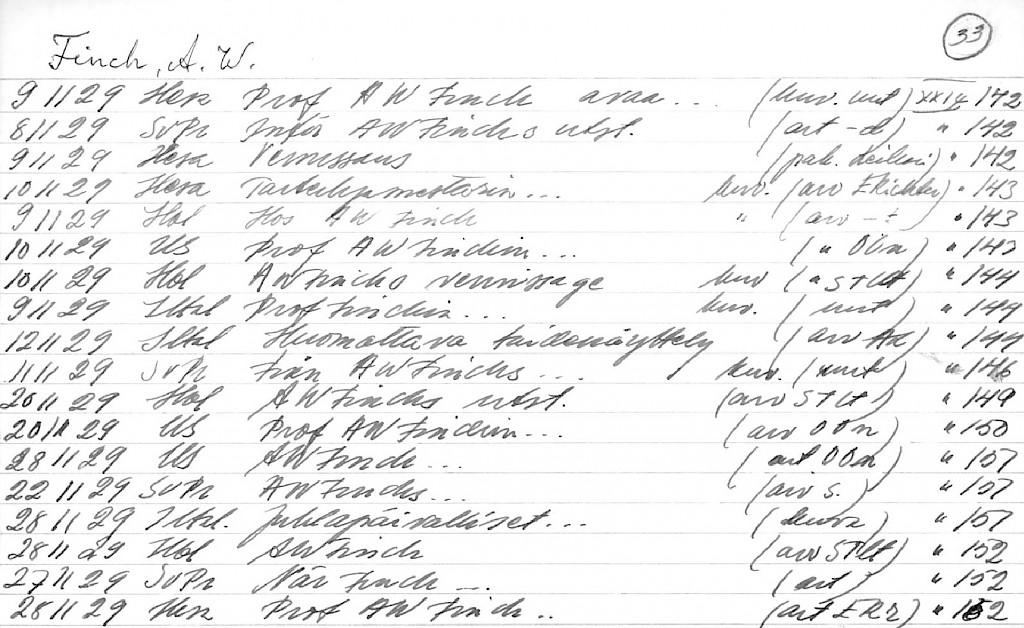 33
Finch, A. W.
9 11 29 Hesa Prof A W Finch avaa ... (kuv. uut) XXIX 142
8 11 29 SvPr Inför A W Finchs utst. (art -d) " 142
9 11 29 Hesa Vernissaus (pak. ) " 142
10 11 29 Hesa Taidemestarin ... kuv. (arv E Richter) " 143
9 11 29 Hbl Hos A W Finch " (arv -t) " 143
10 11 29 US Prof A W Finchin ... ( " OOn) " 143
10 11 29 Hbl A W Finchs vernissage kuv ( " St Lt) " 144
9 11 29 Iltal Prof Finchin ... kuv. (uut) " 144
12 11 29 Iltal Huomattava taidenäyttely (arv Ax) " 144
11 11 29 SvPr Från A W Finchs ... kuv. (uut) " 146
20 11 29 Hbl A W Finchs utst. (arv St Lt) " 149
20 11 29 US Prof A W Finchin ... (arv OOn) " 150
28 11 29 US A W Finch ... (art OOn) " 151
22 11 29 SvPr A W Finchs ... (arv S.) " 151
28 11 29 Iltal. Juhlapäivälliset ... " 151
28 11 29 Hbl A W Finch (arv St Lt) " 152
27 11 29 SvPr När Finch ... (art) " 152
28 11 29 Hesa Prof A W Finch .. (art E R r) " 152